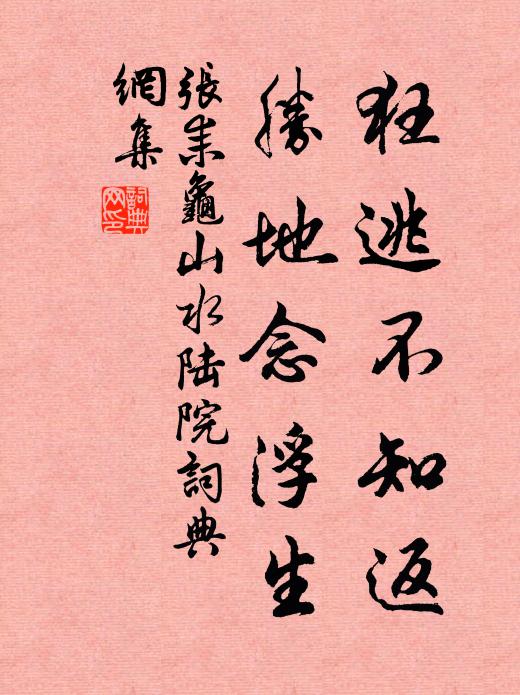 狂逃不知返
勝地念浮生
張耒龜山水陆院詞典
網集
詞典
网印